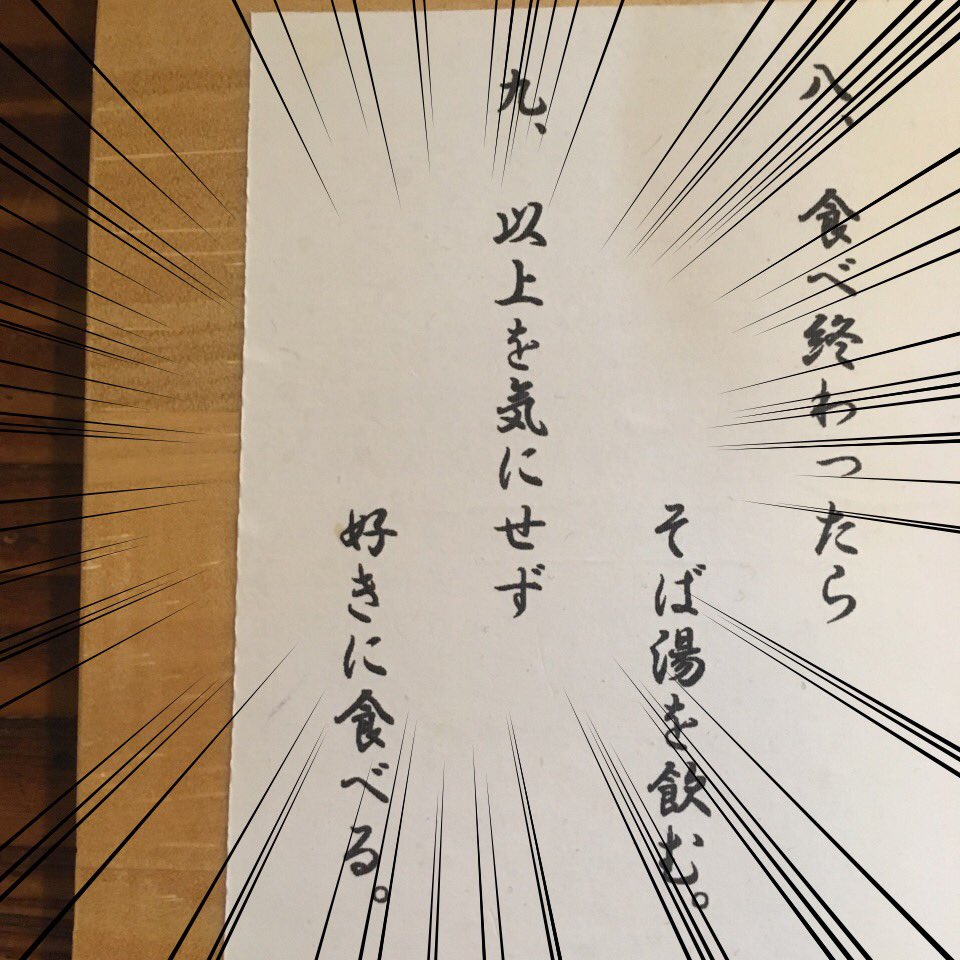 八、食べ終わったら
そば湯を飲む。
九、以上を気にせず
好きに食べる。